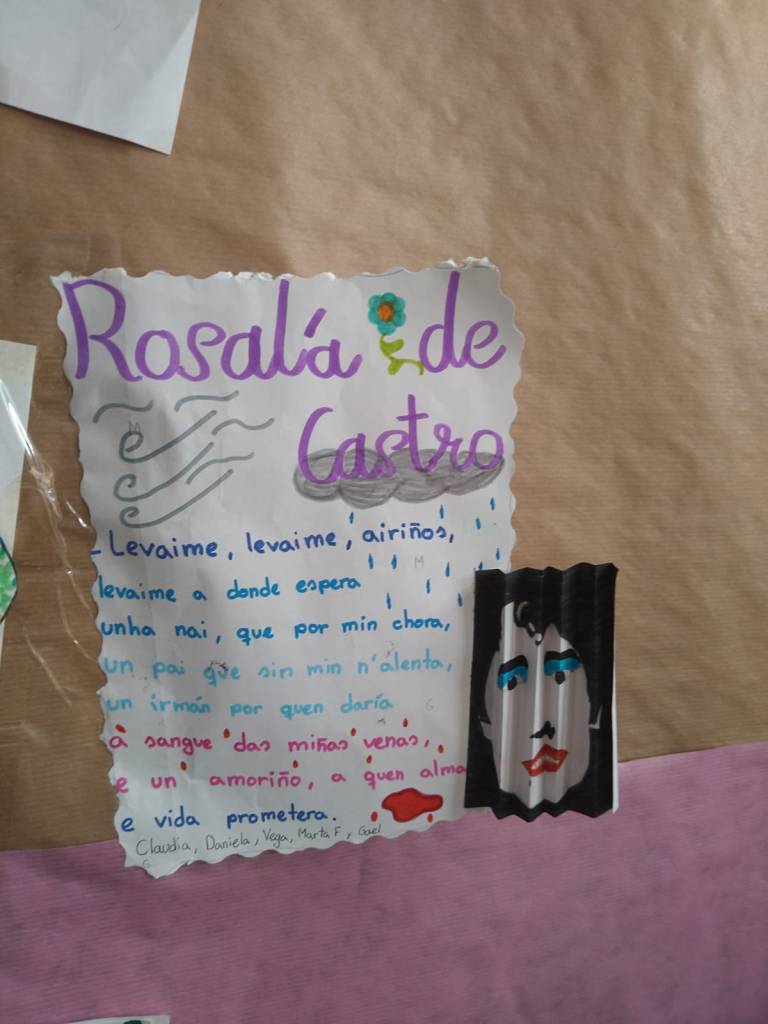 Rosalía de
Castro
- Levaime, levaime, airiños,
levaime a donde espera
unha nai, que por min chora,
un pai que sin min n'alenta,
un irmán por quen daría
á sangue das miñas venas,
e un amoriño, a quen alma
e vida prometera.
Claudia, Daniela, Vega, Marta F, Gael